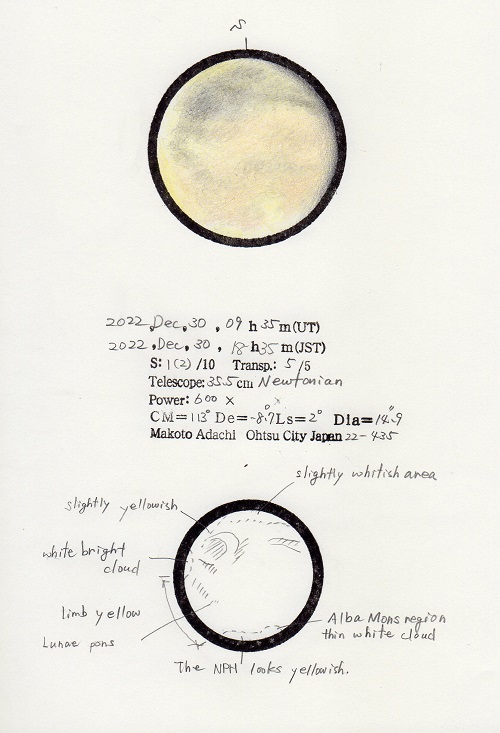 S
2022, Dec, 30, 09 h 35 m (UT)
2022, Dec, 30, 18 h 35 m (JST)
S: 1(2) /10 Transp.: 5 /5
Telescope: 35.5 cm Newtonian
Power: 600 ×
CM= 113° De= -8.°7 Ls= 2° Dia= 14."9
Makoto Adachi Ohtsu City Japan 22-435
slightly whitish area
slightly yellowish
white bright
cloud
limb yellow
Lunae pons
Alba Mons region
thin white cloud
The NPH looks yellowish.